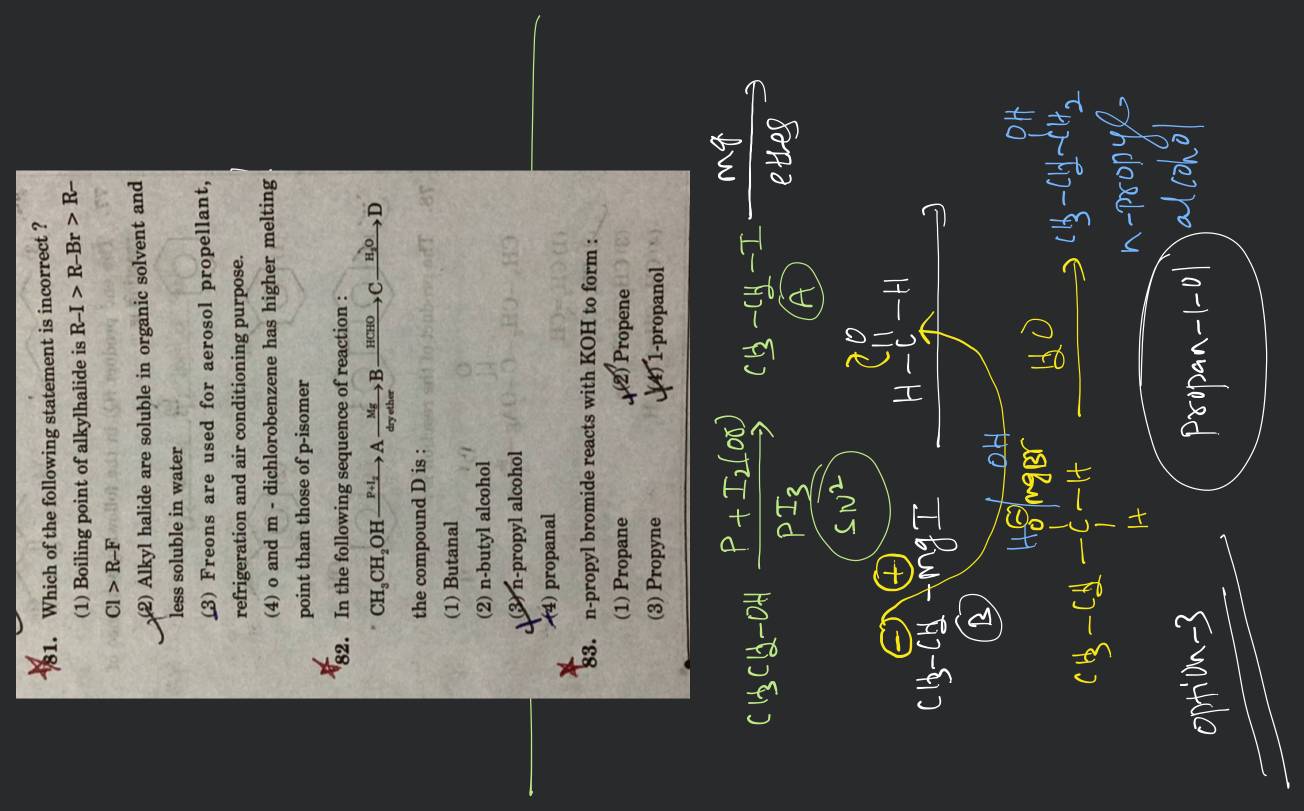 81. Which of the following statement is incorrect ?
(1) Boiling point of alkylhalide is R–I > R–Br > R–
Cl > R–F
(2) Alkyl halide are soluble in organic solvent and
less soluble in water
(3) Freons are used for aerosol propellant,
refrigeration and air conditioning purpose.
(4) o and m - dichlorobenzene has higher melting
point than those of p-isomer
82. In the following sequence of reaction :
CH₃CH₂OH —P+I₂→ A —Mg dry ether→ B —HCHO→ C —H₂O→ D
the compound D is :
(1) Butanal
(2) n-butyl alcohol
(3) n-propyl alcohol
(4) propanal
83. n-propyl bromide reacts with KOH to form :
(1) Propane (2) Propene
(3) Propyne (4) 1-propanol
P + I₂ (or)
CH₃CH₂–OH → CH₃–CH₂–I mg ether →
PI₃
SN²
A
O
H–C–H
⊖ ⊕
CH₃–CH₂–mgI →
B
OH
H O⊖ mgBr
CH₃–CH₂–C–H H₂O →
H
OH
CH₃–CH₂–CH₂
n-propyl
alcohol
propan-1-ol
option-3